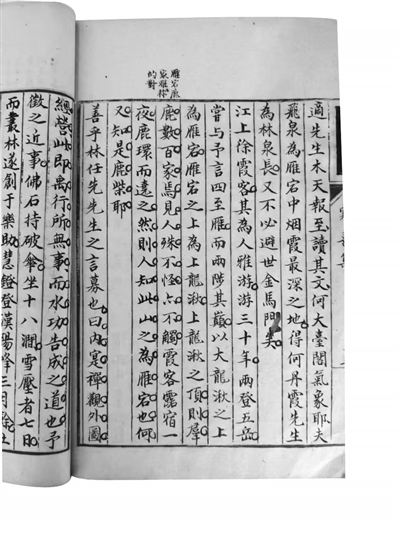 適先生木天報至讀其文何大臺閣氣象耶夫
飛泉為雁宕中烟霞最深之地得何丹霞先生
為林泉長又不必避世金馬門矣
江上徐霞客其為人雅游游三十年兩登五岳
嘗与予言四至雁而兩陟其巔以大龍湫之上
為雁宕雁宕之上為上龍湫上龍湫之頂則羣
鹿數百家焉見人殊不怪占不觸霞客露宿一
夜鹿環而遶之然則人知此山之為雁宕也何
又知是鹿柴耶
善乎林任先先生之言募也曰内寔禪觀外圖
總營此即禹行所無事而水功告成之道也予
徵之近事佛石持破龕坐十八澗雪壓者七日
而叢林遂創于樂助慧鐙登漢陽峰三月餘
雁宕鹿
家雁祥
的對